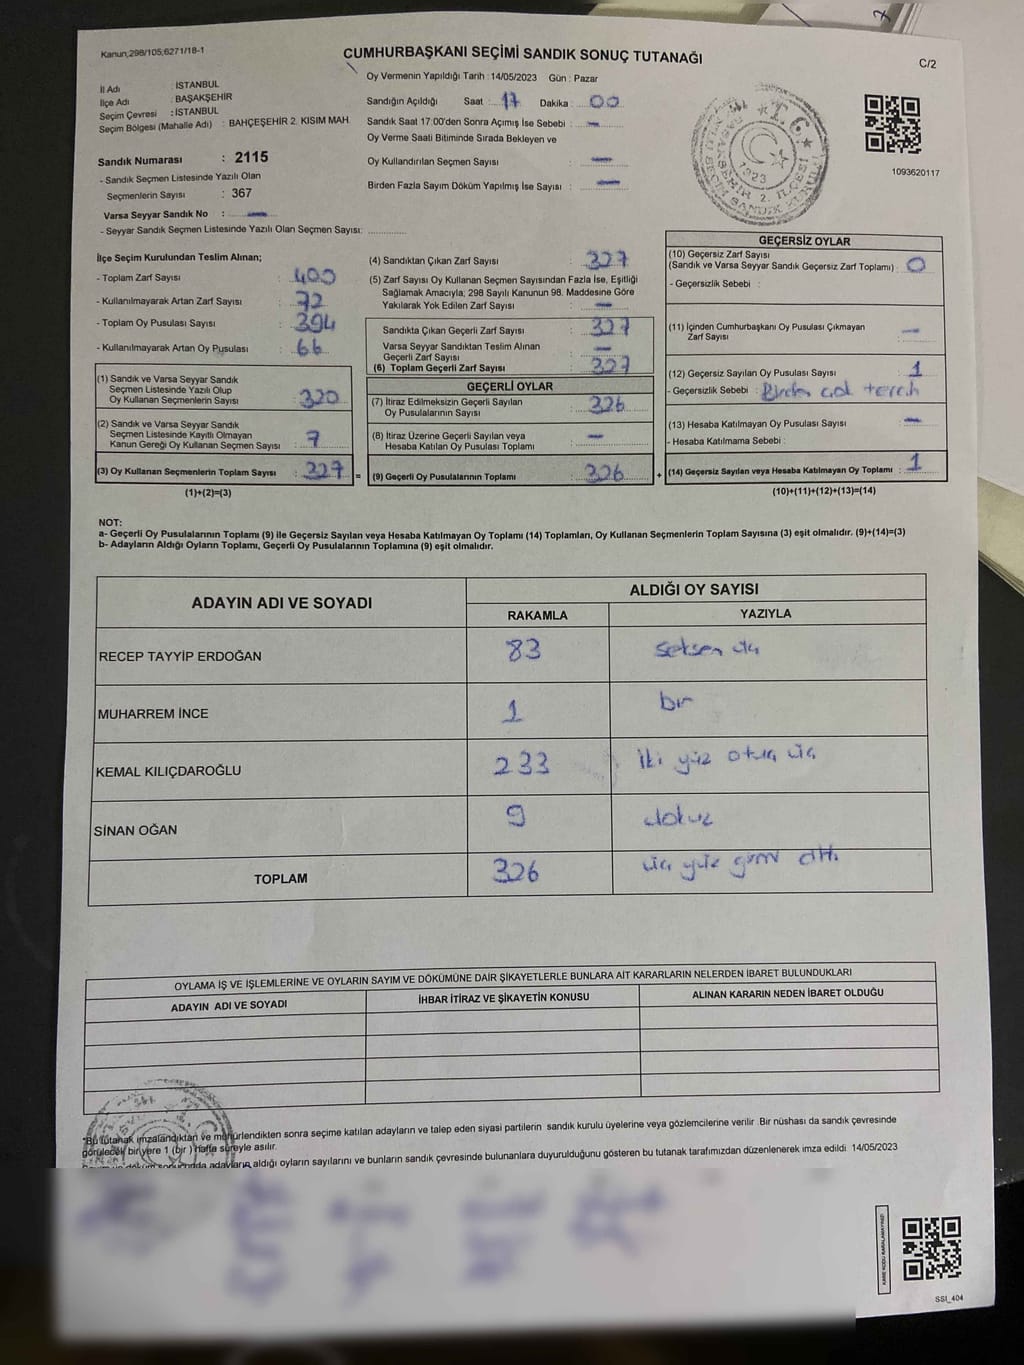 Kanun;298/105;6271/18-1
CUMHURBAŞKANI SEÇİMİ SANDIK SONUÇ TUTANAĞI
C/2
İl Adı : İSTANBUL
İlçe Adı : BAŞAKŞEHİR
Seçim Çevresi : İSTANBUL
Seçim Bölgesi (Mahalle Adı) : BAHÇEŞEHİR 2. KISIM MAH.
Sandık Numarası : 2115
- Sandık Seçmen Listesinde Yazılı Olan
Seçmenlerin Sayısı : 367
Varsa Seyyar Sandık No : —
- Seyyar Sandık Seçmen Listesinde Yazılı Olan Seçmen Sayısı:
Oy Vermenin Yapıldığı Tarih : 14/05/2023 Gün : Pazar
Sandığın Açıldığı Saat : 17 Dakika : 00
Sandık Saat 17:00'den Sonra Açımış İse Sebebi : —
Oy Verme Saati Bitiminde Sırada Bekleyen ve
Oy Kullandırılan Seçmen Sayısı : —
Birden Fazla Sayım Döküm Yapılmış İse Sayısı : —
T.C.
1923
BAŞAKŞEHİR 2. İLÇESİ
SANDIK KURULU
1093620117
İlçe Seçim Kurulundan Teslim Alınan;
- Toplam Zarf Sayısı : 400
- Kullanılmayarak Artan Zarf Sayısı : 72
- Toplam Oy Pusulası Sayısı : 394
- Kullanılmayarak Artan Oy Pusulası : 66
(1) Sandık ve Varsa Seyyar Sandık
Seçmen Listesinde Yazılı Olup
Oy Kullanan Seçmenlerin Sayısı : 320
(2) Sandık ve Varsa Seyyar Sandık
Seçmen Listesinde Kayıtlı Olmayan
Kanun Gereği Oy Kullanan Seçmen Sayısı : 7
(3) Oy Kullanan Seçmenlerin Toplam Sayısı : 327 =
(1)+(2)=(3)
(4) Sandıktan Çıkan Zarf Sayısı : 327
(5) Zarf Sayısı Oy Kullanan Seçmen Sayısından Fazla İse, Eşitliği
Sağlamak Amacıyla; 298 Sayılı Kanunun 98. Maddesine Göre
Yakılarak Yok Edilen Zarf Sayısı : —
Sandıkta Çıkan Geçerli Zarf Sayısı : 327
Varsa Seyyar Sandıktan Teslim Alınan
Geçerli Zarf Sayısı : —
(6) Toplam Geçerli Zarf Sayısı : 327
GEÇERLİ OYLAR
(7) İtiraz Edilmeksizin Geçerli Sayılan
Oy Pusulalarının Sayısı : 326
(8) İtiraz Üzerine Geçerli Sayılan veya
Hesaba Katılan Oy Pusulası Toplamı : —
(9) Geçerli Oy Pusulalarının Toplamı : 326 +
GEÇERSİZ OYLAR
(10) Geçersiz Zarf Sayısı
(Sandık ve Varsa Seyyar Sandık Geçersiz Zarf Toplamı) : 0
- Geçersizlik Sebebi :
(11) İçinden Cumhurbaşkanı Oy Pusulası Çıkmayan
Zarf Sayısı : —
(12) Geçersiz Sayılan Oy Pusulası Sayısı : 1
- Geçersizlik Sebebi : Birden çok tercih
(13) Hesaba Katılmayan Oy Pusulası Sayısı : —
- Hesaba Katılmama Sebebi :
(14) Geçersiz Sayılan veya Hesaba Katılmayan Oy Toplamı : 1
(10)+(11)+(12)+(13)=(14)
NOT:
a- Geçerli Oy Pusulalarının Toplamı (9) ile Geçersiz Sayılan veya Hesaba Katılmayan Oy Toplamı (14) Toplamları, Oy Kullanan Seçmenlerin Toplam Sayısına (3) eşit olmalıdır. (9)+(14)=(3)
b- Adayların Aldığı Oyların Toplamı, Geçerli Oy Pusulalarının Toplamına (9) eşit olmalıdır.
ADAYIN ADI VE SOYADI
ALDIĞI OY SAYISI
RAKAMLA YAZIYLA
RECEP TAYYİP ERDOĞAN 83 seksen üç
MUHARREM İNCE 1 bir
KEMAL KILIÇDAROĞLU 233 iki yüz otuz üç
SİNAN OĞAN 9 dokuz
TOPLAM 326 üç yüz yirmi altı
OYLAMA İŞ VE İŞLEMLERİNE VE OYLARIN SAYIM VE DÖKÜMÜNE DAİR ŞİKAYETLERLE BUNLARA AİT KARARLARIN NELERDEN İBARET BULUNDUKLARI
ADAYIN ADI VE SOYADI İHBAR İTİRAZ VE ŞİKAYETİN KONUSU ALINAN KARARIN NEDEN İBARET OLDUĞU
*Bu tutanak imzalandıktan ve mühürlendikten sonra seçime katılan adayların ve talep eden siyasi partilerin sandık kurulu üyelerine veya gözlemcilerine verilir. Bir nüshası da sandık çevresinde
görülecek bir yere 1 (bir ) hafta süreyle asılır.
adayların aldığı oyların sayılarını ve bunların sandık çevresinde bulunanlara duyurulduğunu gösteren bu tutanak tarafımızdan düzenlenerek imza edildi 14/05/2023
KARE KODU KARALAMAYINIZ!
SSI_404